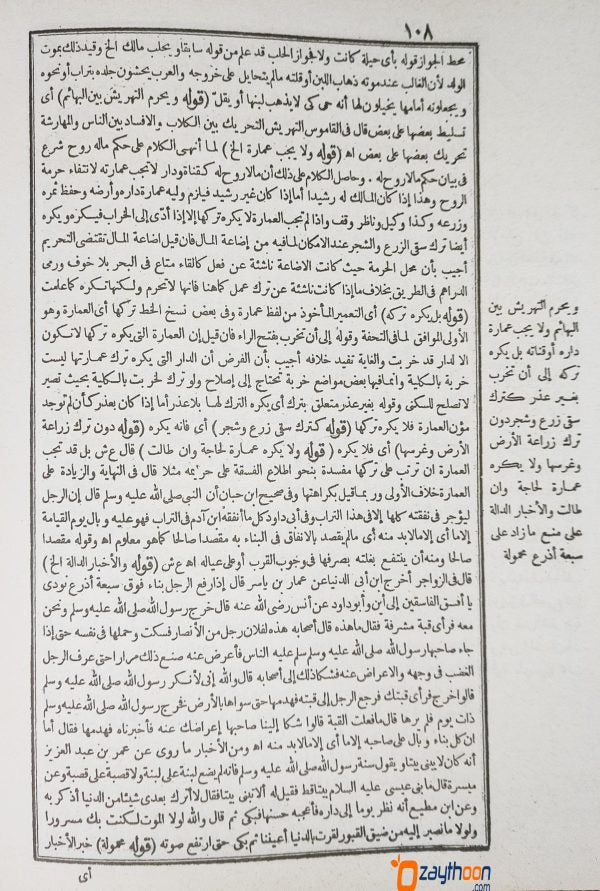 ١٠٨
محط الجواز قوله بأى حيلة كانت ولا فجواز الحلب قد علم من قوله سابقا ويجلب مالك الخ وقيد ذلك بموت
الولد لأن الغالب عند موته ذهاب اللبن أو قلته مالم يتحايل على خروجه والعرب يحشون جلده بتراب أو نحوه
ويجعلونه أمامها يخيلون لها أنه حى كى لا يذهب لبنها أو يقلّ (قوله ويحرم التهريش بين البهائم) أى
تسليط بعضها على بعض قال فى القاموس التهريش التحريك بين الكلاب والافساد بين الناس والمهارشة
تحريك بعضها على بعض اه (قوله ولا يجب عمارة الخ) لما أنهى الكلام على حكم ماله روح شرع
فى بيان حكم مالا روح له . وحاصل الكلام على ذلك أن مالا روح له كقناة ودار لا تجب عمارته لانتفاء حرمة
الروح وهذا إذا كان المالك له رشيدا أما إذا كان غير رشيد فيلزم وليه عمارة داره وأرضه وحفظ ثمره
وزرعه وكذا وكيل وناظر وقف واذا لم تجب العمارة لا يكره تركها إلا إذا أدّى إلى الخراب فيكره ويكره
أيضا ترك سقى الزرع والشجر عند الامكان لما فيه من إضاعة المال فان قيل اضاعة المال تقتضى التحريم
أجيب بأن محل الحرمة حيث كانت الاضاعة ناشئة عن فعل كالقاء متاع فى البحر بلا خوف ورمى
الدراهم فى الطريق بخلاف ما إذا كانت ناشئة عن ترك عمل كما هنا فانها لا تحرم ولكنها تكره كما علمت
(قوله بل يكره تركه) أى التعمير المأخوذ من لفظ عمارة وفى بعض نسخ الخط تركها أى العمارة وهو
الأولى الموافق لما فى التحفة وقوله إلى أن تخرب بفتح الراء فان قيل إن العمارة التى يكره تركها لا تكون
الا لدار قد خربت والغاية تفيد خلافه أجيب بأن الفرض أن الدار التى يكره ترك عمارتها ليست
خربة بالكلية وانما فيها بعض مواضع خربة تحتاج إلى إصلاح ولو ترك لخربت بالكلية بحيث تصير
لا تصلح للسكنى وقوله بغير عذر متعلق بترك أى يكره الترك لها بلا عذر أما إذا كان بعذر كأن لم توجد
مؤن العمارة فلا يكره تركها (قوله كترك سقى زرع وشجر) أى فانه يكره (قوله دون ترك زراعة
الأرض وغرسها) أى فلا يكره (قوله ولا يكره عمارة لحاجة وان طالت) قال ع ش بل قد تجب
العمارة ان ترتب على تركها مفسدة بنحو اطلاع الفسقة على حريمه مثلا قال فى النهاية والزيادة على
العمارة خلاف الأولى وربما قيل بكراهتها وفى صحيح ابن حبان أن النبى صلى الله عليه وسلم قال إن الرجل
ليؤجر فى نفقته كلها إلا فى هذا التراب وفى أبى داود كل ما أنفقه ابن آدم فى التراب فهو عليه وبال يوم القيامة
إلا ما أى إلا مالابد منه أى مالم يقصد بالانفاق فى البناء به مقصدا صالحا كما هو معلوم اه وقوله مقصدا
صالحا ومنه أن ينتفع بغلته بصرفها فى وجوب القرب أو على عياله اه ع ش (قوله والأخبار الدالة الخ)
قال فى الزواجر أخرج ابن أبى الدنيا عن عمار بن ياسر قال إذا رفع الرجل بناء فوق سبعة أذرع نودى
يا أفسق الفاسقين إلى أين وأبو داود عن أنس رضى الله عنه قال خرج رسول الله صلى الله عليه وسلم ونحن
معه فرأى قبة مشرفة فقال ما هذه قال أصحابه هذه لفلان رجل من الأنصار فسكت وحملها فى نفسه حتى إذا
جاء صاحبها رسول الله صلى الله عليه وسلم سلم عليه الناس فأعرض عنه صنع ذلك مرارا حتى عرف الرجل
الغضب فى وجهه والاعراض عنه فشكا ذلك إلى أصحابه قال والله إنى لأنكر رسول الله صلى الله عليه وسلم
قالوا خرج فرأى قبتك فرجع الرجل إلى قبته فهدمها حتى سواها بالأرض فخرج رسول الله صلى الله عليه وسلم
ذات يوم فلم يرها قال ما فعلت القبة قالوا شكا إلينا صاحبها إعراضك عنه فأخبرناه فهدمها فقال أما
ان كل بناء وبال على صاحبه إلا ما أى إلا مالابد منه اه ومن الأخبار ما روى عن عمر بن عبد العزيز
أنه كان لا يبنى بيتا ويقول سنة رسول الله صلى الله عليه وسلم فانه لم يضع لبنة على لبنة ولا قصبة على قصبة وعن
ميسرة قال ما بنى عيسى عليه السلام بيتا قط فقيل له ألا تبنى بيتا فقال لا أترك بعدى شيئا من الدنيا أذكر به
وعن ابن مطيع أنه نظر يوما إلى داره فأعجبه حسنها فبكى ثم قال والله لولا الموت لكنت بك مسرورا
ولولا ما نصير إليه من ضيق القبور لقرت بالدنيا أعيننا ثم بكى حتى ارتفع صوته (قوله محمولة) خبر الأخبار
أى
ويحرم التهريش بين
البهائم ولا يجب عمارة
داره أو قناته بل يكره
تركه إلى أن تخرب
بغير عذر كترك
سقى زرع وشجر دون
ترك زراعة الأرض
وغرسها ولا يكره
عمارة لحاجة وان
طالت والأخبار الدالة
على منع ما زاد على
سبعة أذرع محمولة
zaythoon
.com